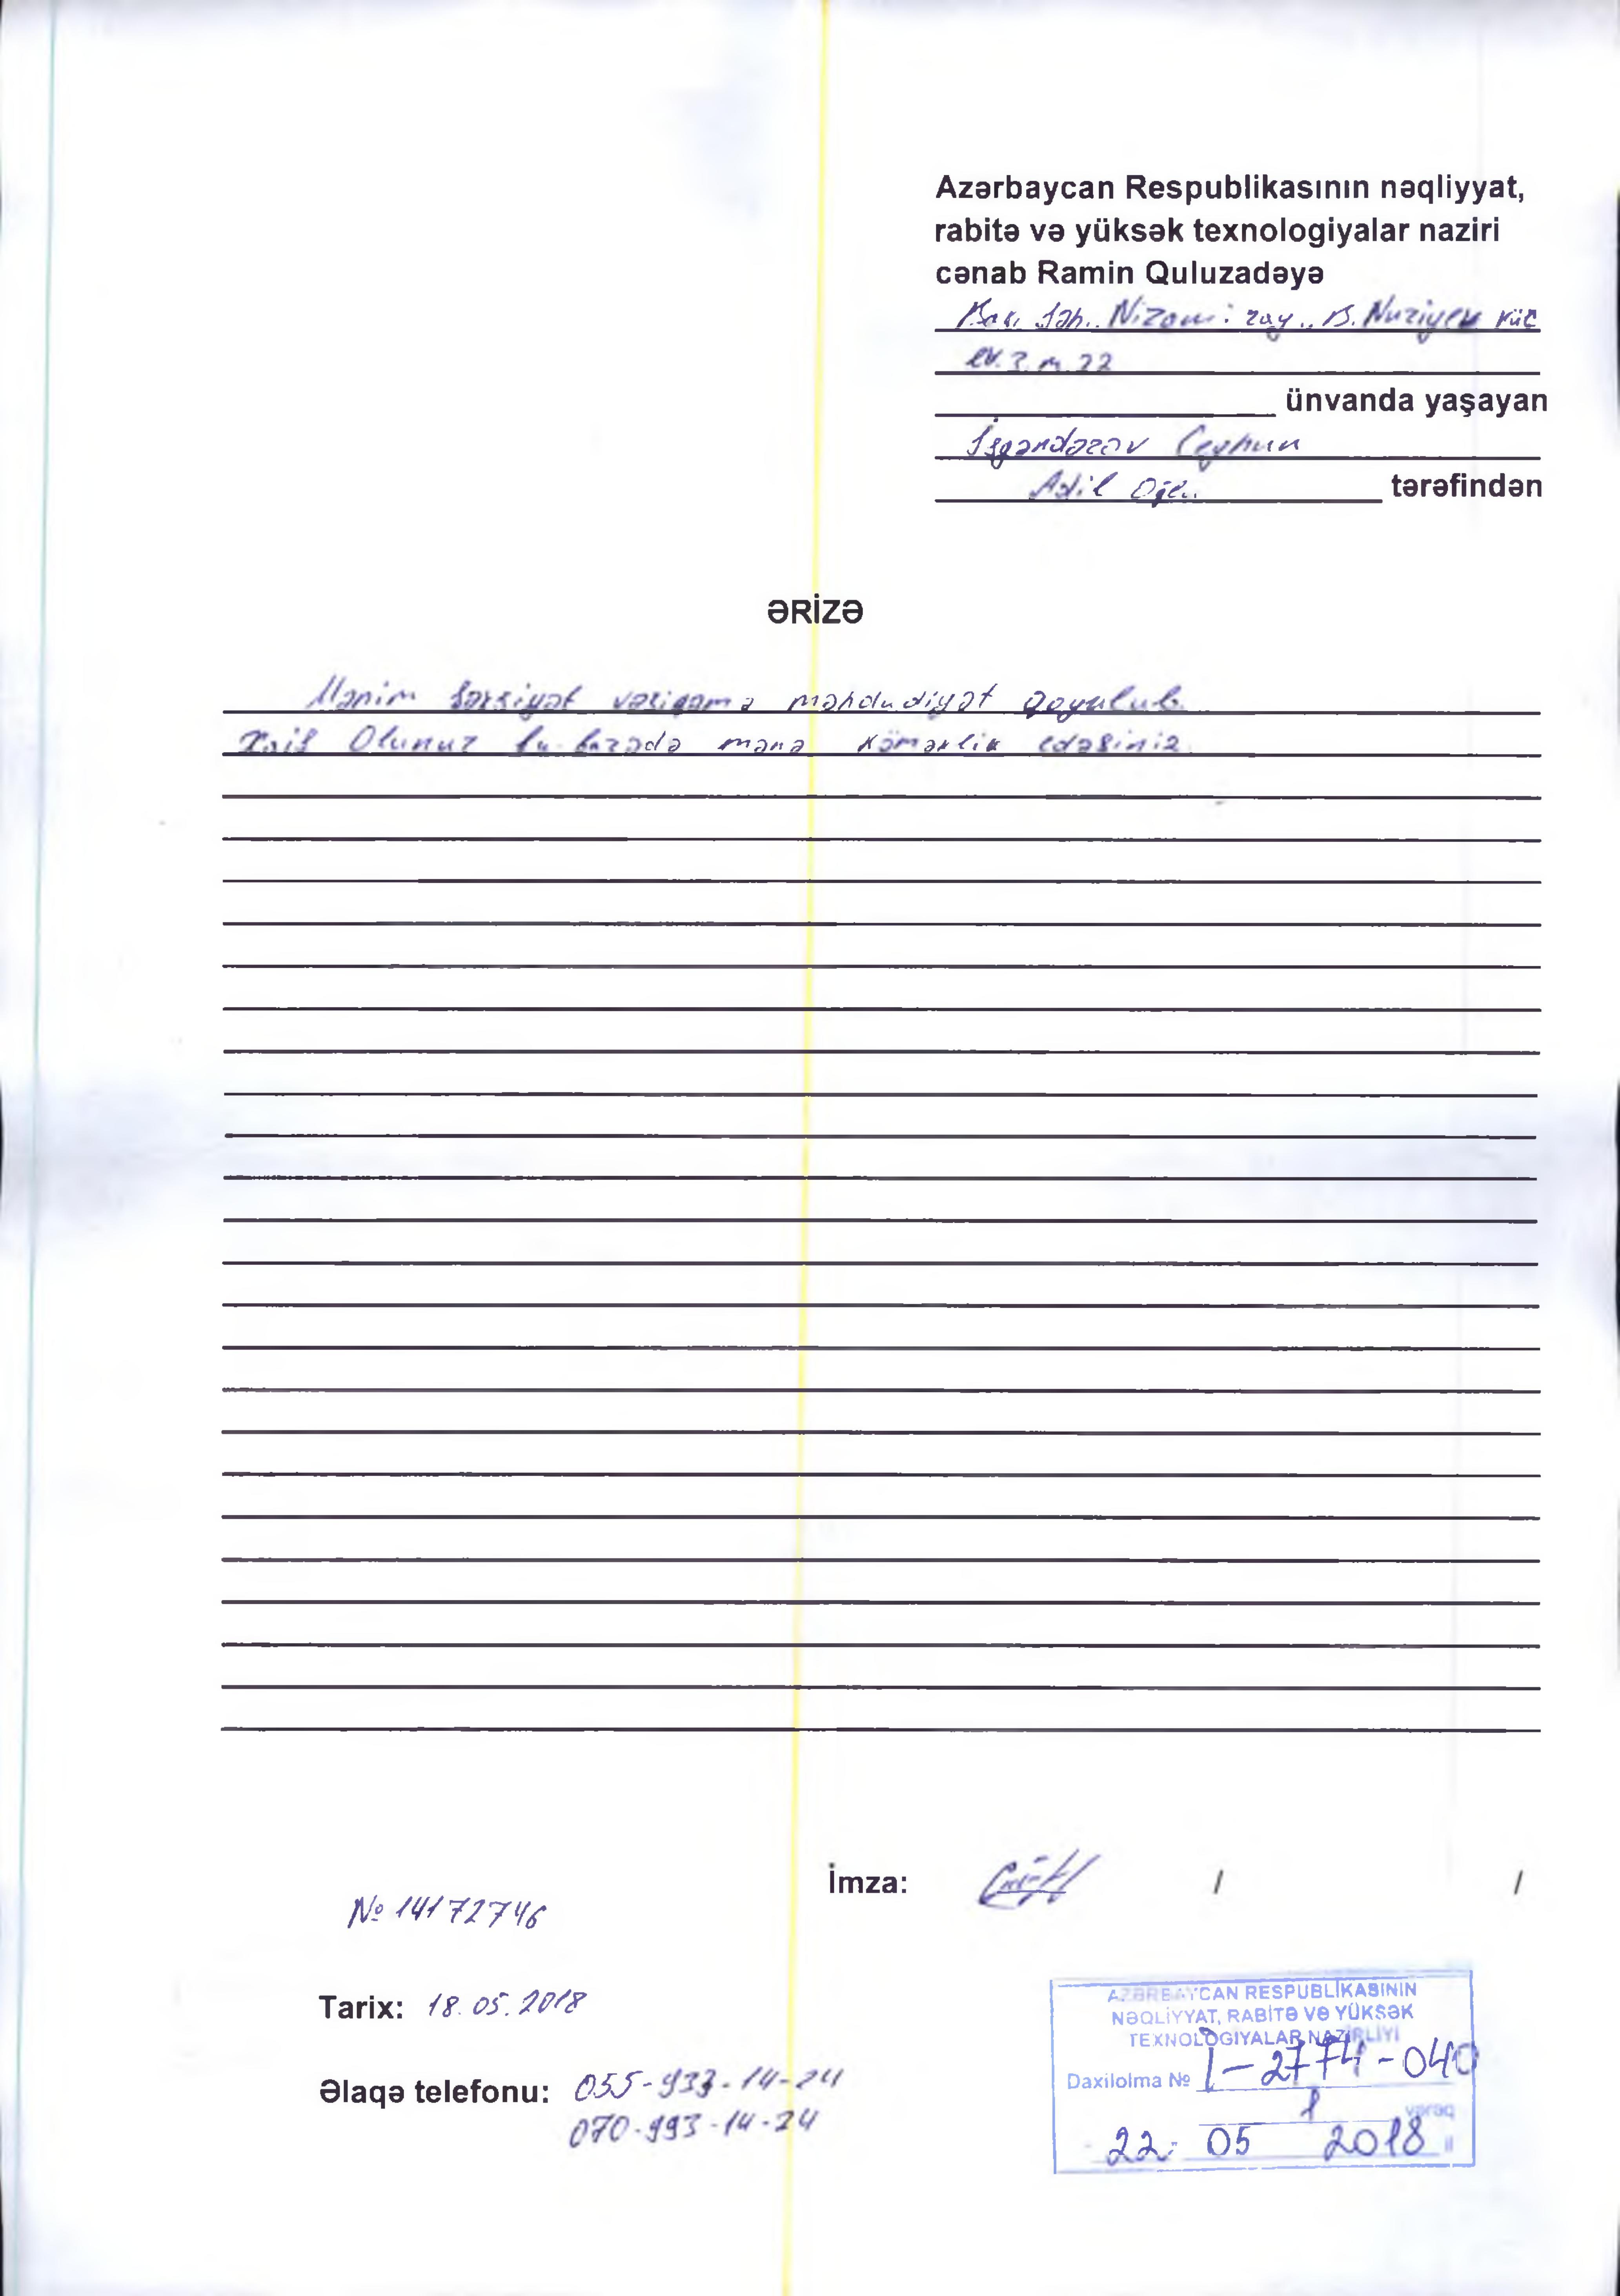 Azərbaycan Respublikasının nəqliyyat,
rabitə və yüksək texnologiyalar naziri
cənab Ramin Quluzadəyə
Bakı şəh. Nizami ray., B. Nuriyev küç
ev. 7. m 22
ünvanda yaşayan
İsgəndərov Ceyhun
Adil Oğlu tərəfindən
ƏRİZƏ
Mənim şəxsiyət vəsiqəmə məhdudiyət qoyulub.
Xaiş Olunur bu barədə mənə Köməklik edəsiniz
İmza: / /
№ 14172746
Tarix: 18.05.2018
Əlaqə telefonu: 055-933-14-24
070-993-14-24
AZƏRBAYCAN RESPUBLİKASININ
NƏQLİYYAT, RABİTƏ VƏ YÜKSƏK
TEXNOLOGİYALAR NAZİRLİYİ
Daxilolma № 1-2774-040
1 vərəq
22. 05 2018 il